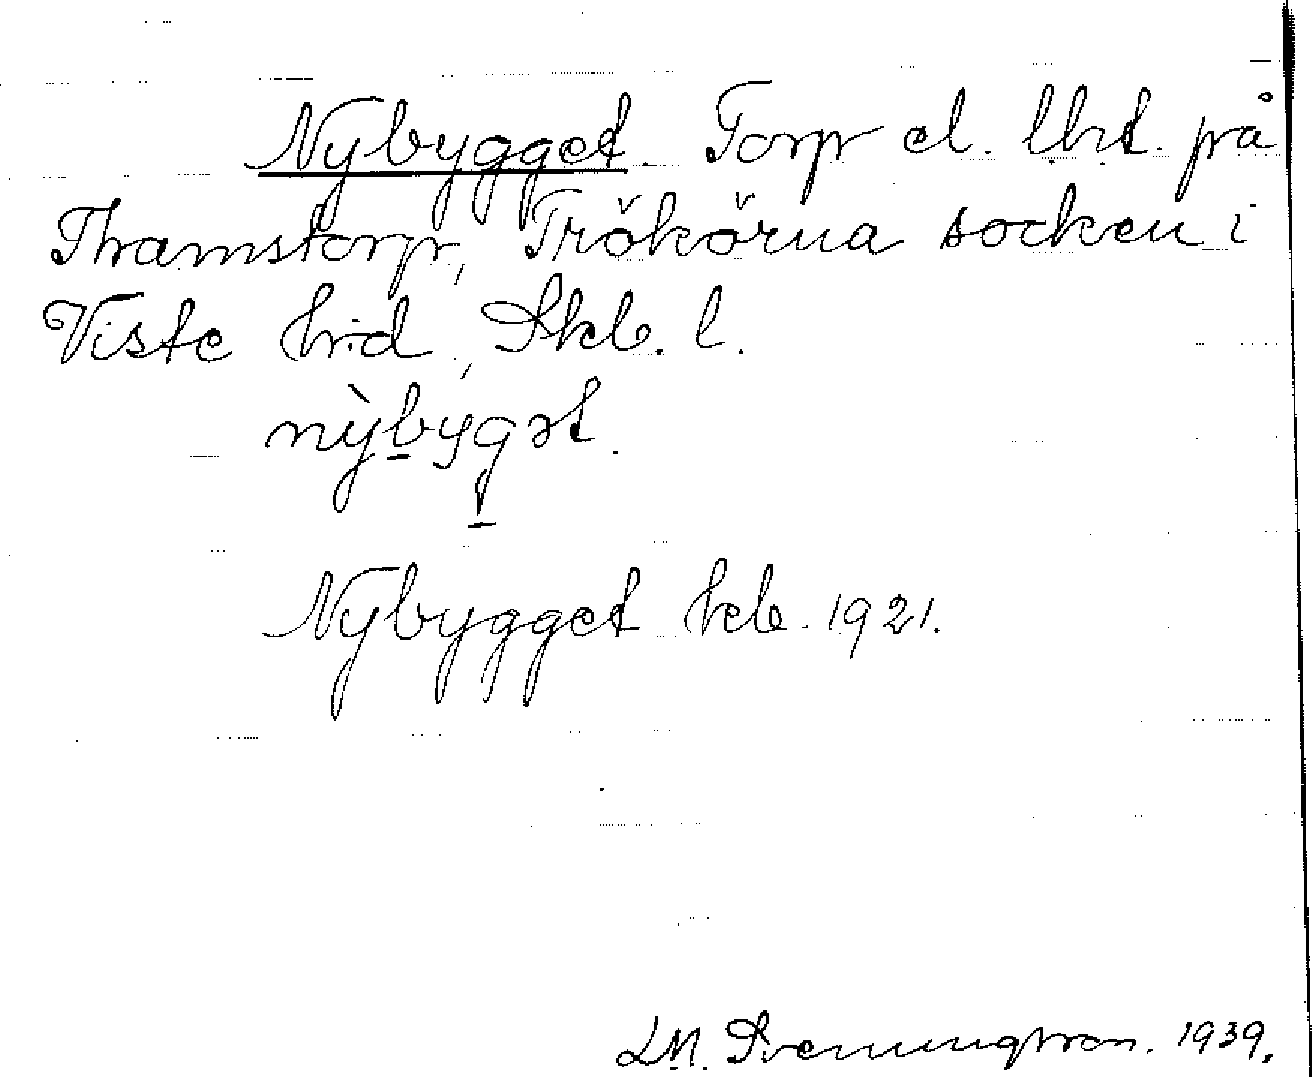 Nybygget. Torp el. lht. på
Thamstorp, Trökörna socken i
Viste hd, Skb. l.
nỳbygət.
Nybygget kb. 1921.
L.M. Svenungsson. 1939.